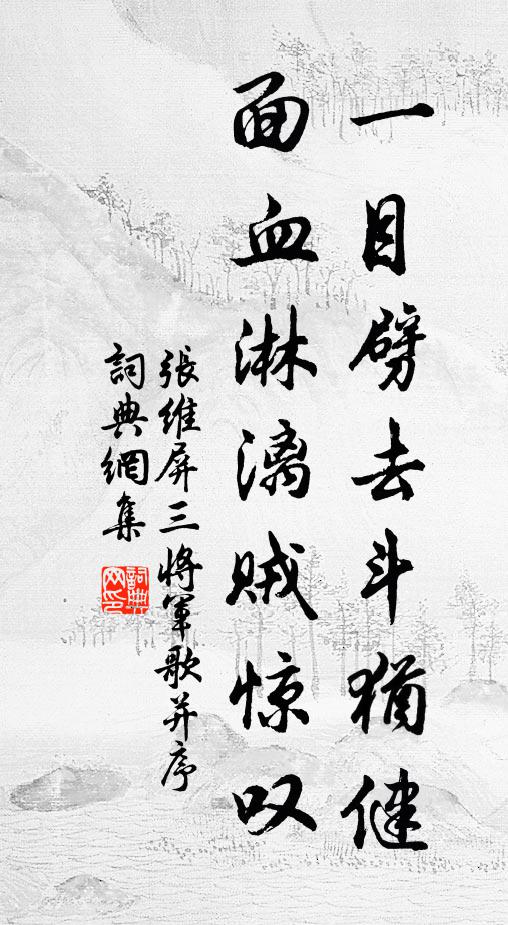 一目劈去斗犹健
面血淋漓贼惊叹
張維屏三將軍歌并序
詞典網集
詞典網印